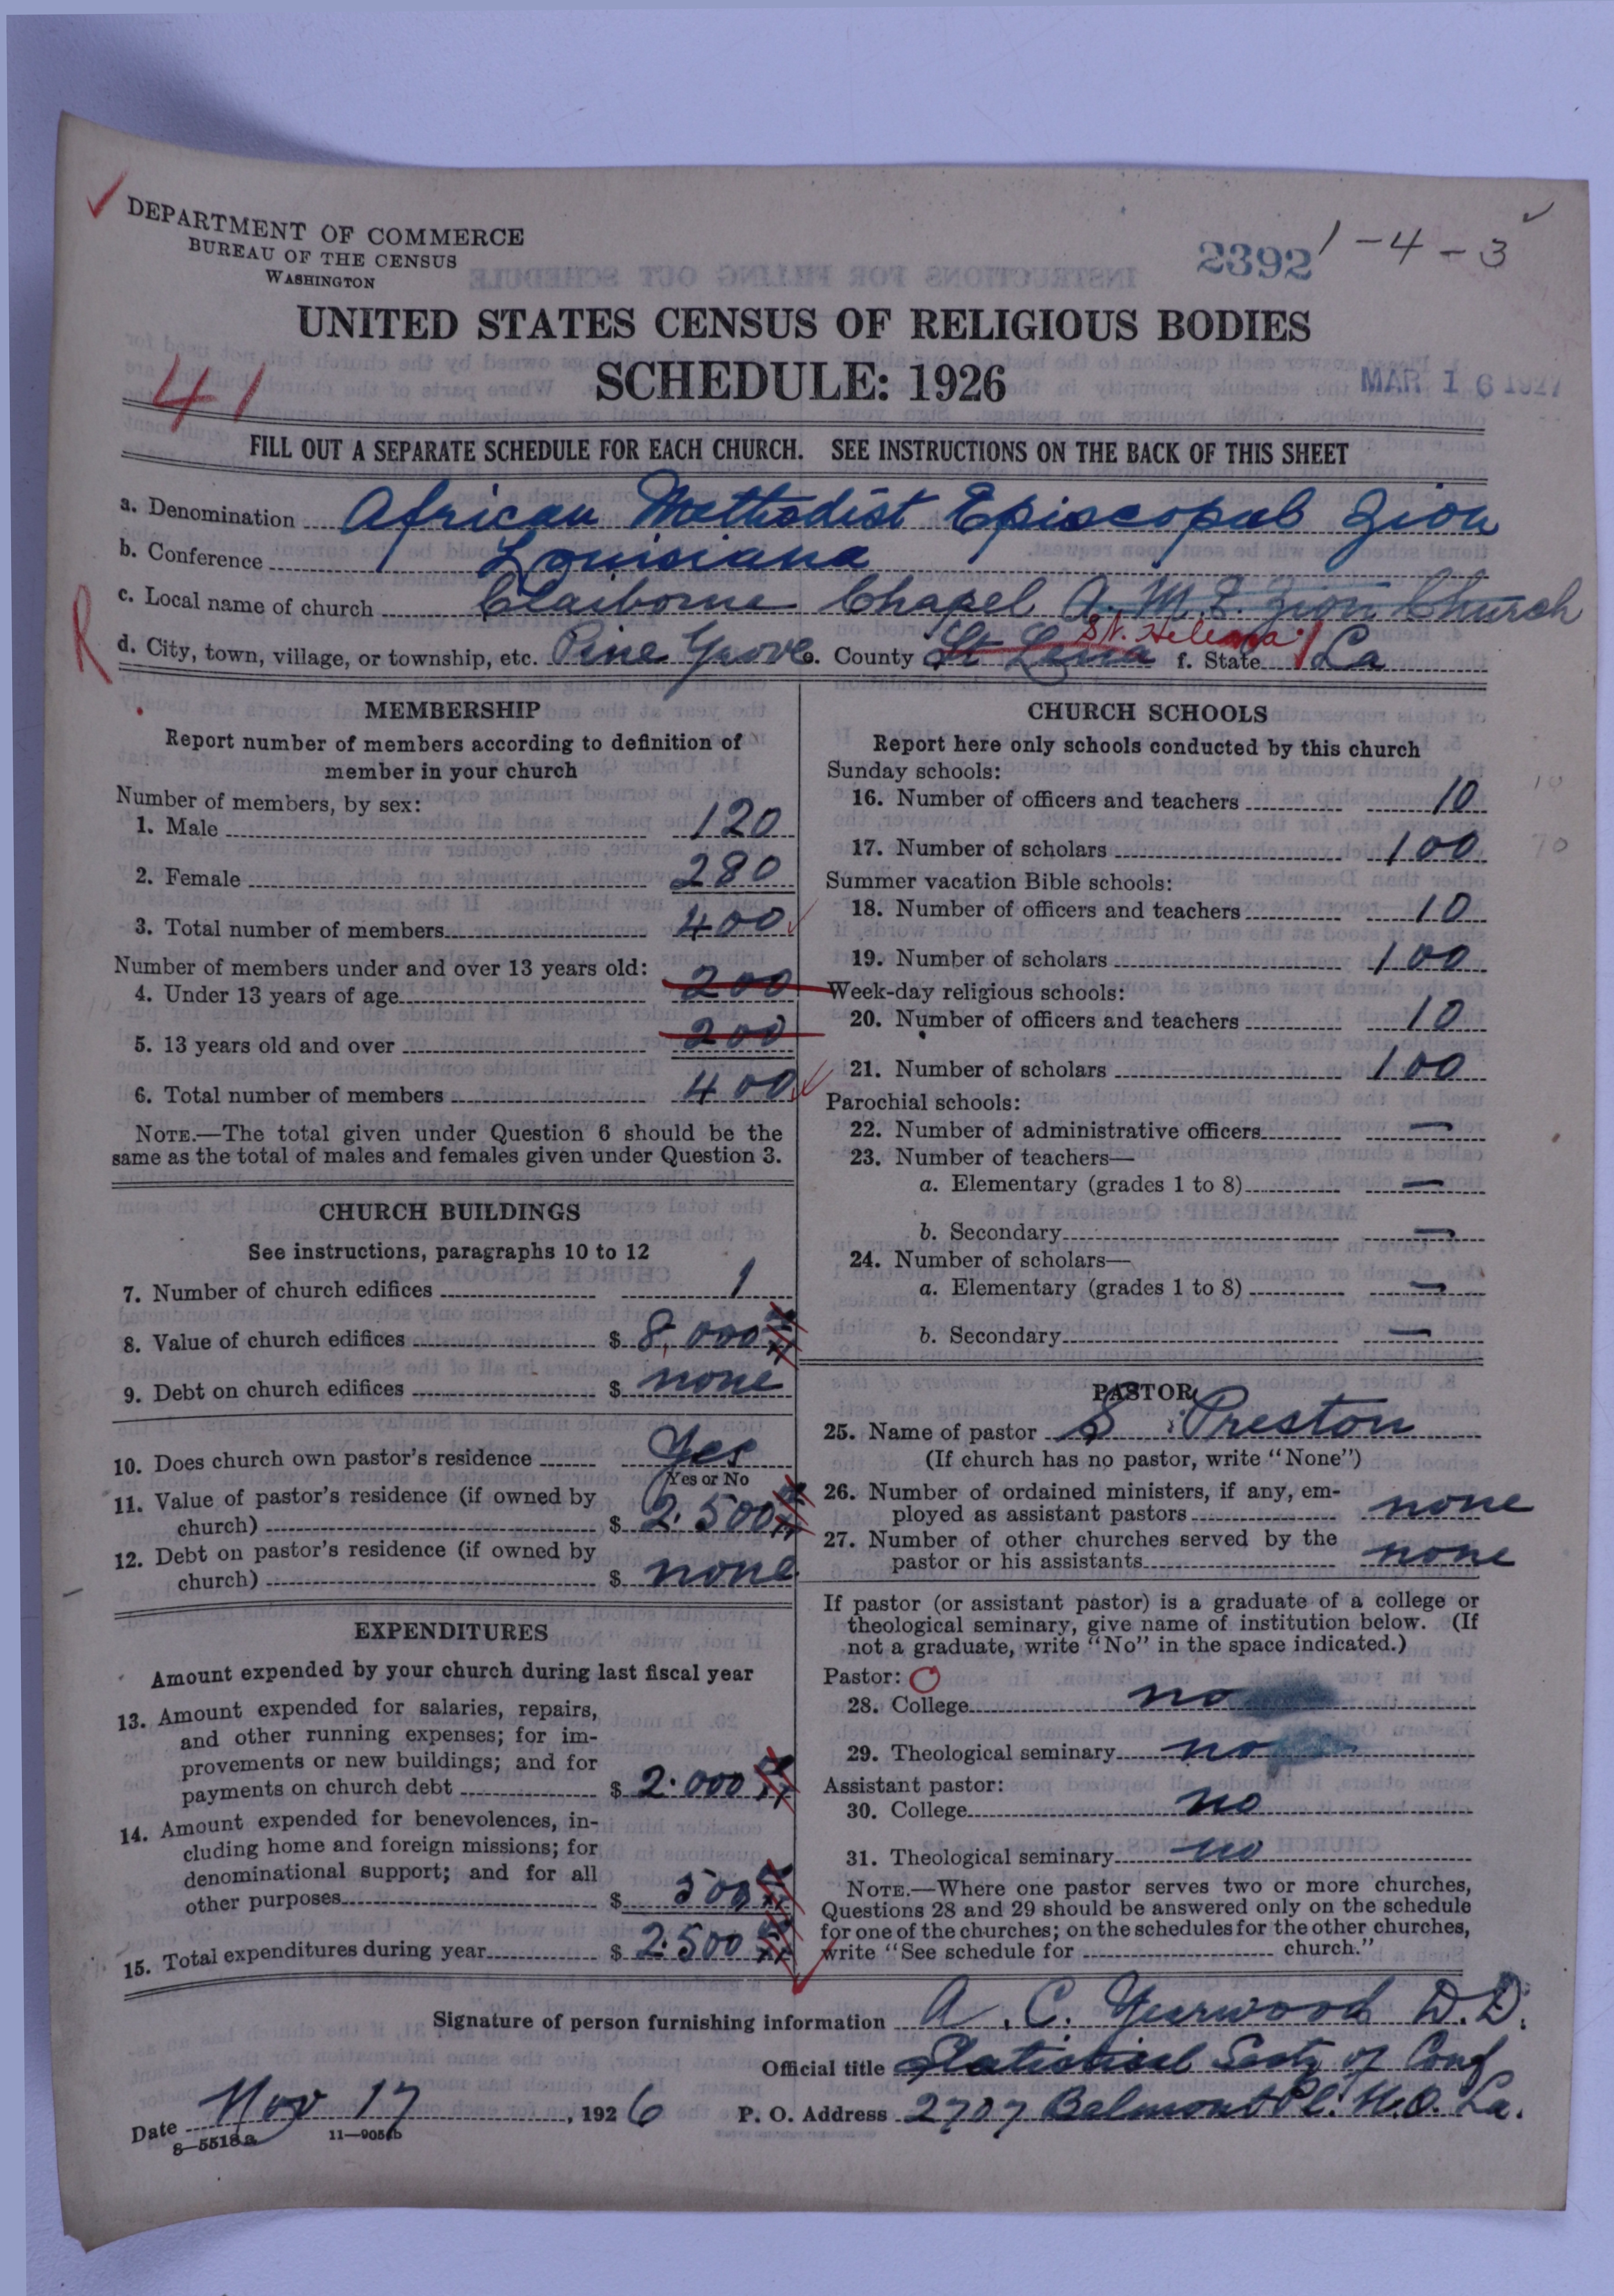 DEPARTMENT OF COMMERCE
BUREAU OF THE CENSUS
WASHINGTON
2392 1-4-3
UNITED STATES CENSUS OF RELIGIOUS BODIES
SCHEDULE: 1926
MAR 16 1927
41
FILL OUT A SEPARATE SCHEDULE FOR EACH CHURCH. SEE INSTRUCTIONS ON THE BACK OF THIS SHEET
a. Denomination African Methodist Episcopal Zion
b. Conference Louisiana
c. Local name of church Claiborne Chapel A. M. E. Zion Church
R
St. Helena
d. City, town, village, or township, etc. Pine Grove e. County St Lena f. State La
MEMBERSHIP
Report number of members according to definition of
member in your church
Number of members, by sex:
1. Male 120
2. Female 280
3. Total number of members 400
Number of members under and over 13 years old:
4. Under 13 years of age 200
5. 13 years old and over 200
6. Total number of members 400
NOTE.—The total given under Question 6 should be the
same as the total of males and females given under Question 3.
CHURCH BUILDINGS
See instructions, paragraphs 10 to 12
7. Number of church edifices 1
8. Value of church edifices $ 8,000
9. Debt on church edifices $ none
10. Does church own pastor's residence Yes
Yes or No
11. Value of pastor's residence (if owned by
church) $ 2.500
12. Debt on pastor's residence (if owned by
church) $ none
EXPENDITURES
Amount expended by your church during last fiscal year
13. Amount expended for salaries, repairs,
and other running expenses; for im-
provements or new buildings; and for
payments on church debt $ 2.000
14. Amount expended for benevolences, in-
cluding home and foreign missions; for
denominational support; and for all
other purposes $ 500
15. Total expenditures during year $ 2.500
CHURCH SCHOOLS
Report here only schools conducted by this church
Sunday schools:
16. Number of officers and teachers 10 10
17. Number of scholars 100 70
Summer vacation Bible schools:
18. Number of officers and teachers 10
19. Number of scholars 100
Week-day religious schools:
20. Number of officers and teachers 10
21. Number of scholars 100
Parochial schools:
22. Number of administrative officers —
23. Number of teachers—
a. Elementary (grades 1 to 8) —
b. Secondary —
24. Number of scholars—
a. Elementary (grades 1 to 8) —
b. Secondary —
PASTOR
25. Name of pastor S Preston
(If church has no pastor, write "None")
26. Number of ordained ministers, if any, em-
ployed as assistant pastors none
27. Number of other churches served by the
pastor or his assistants none
If pastor (or assistant pastor) is a graduate of a college or
theological seminary, give name of institution below. (If
not a graduate, write "No" in the space indicated.)
Pastor: O
28. College no
29. Theological seminary no
Assistant pastor:
30. College no
31. Theological seminary no
NOTE.—Where one pastor serves two or more churches,
Questions 28 and 29 should be answered only on the schedule
for one of the churches; on the schedules for the other churches,
write "See schedule for church."
Signature of person furnishing information A. C. Yearwood D.D.
Official title Statistical Secty of Conf
Date Nov 17, 1926 P. O. Address 2707 Belmont Pl. N.O. La.
8—5518a 11—9054b